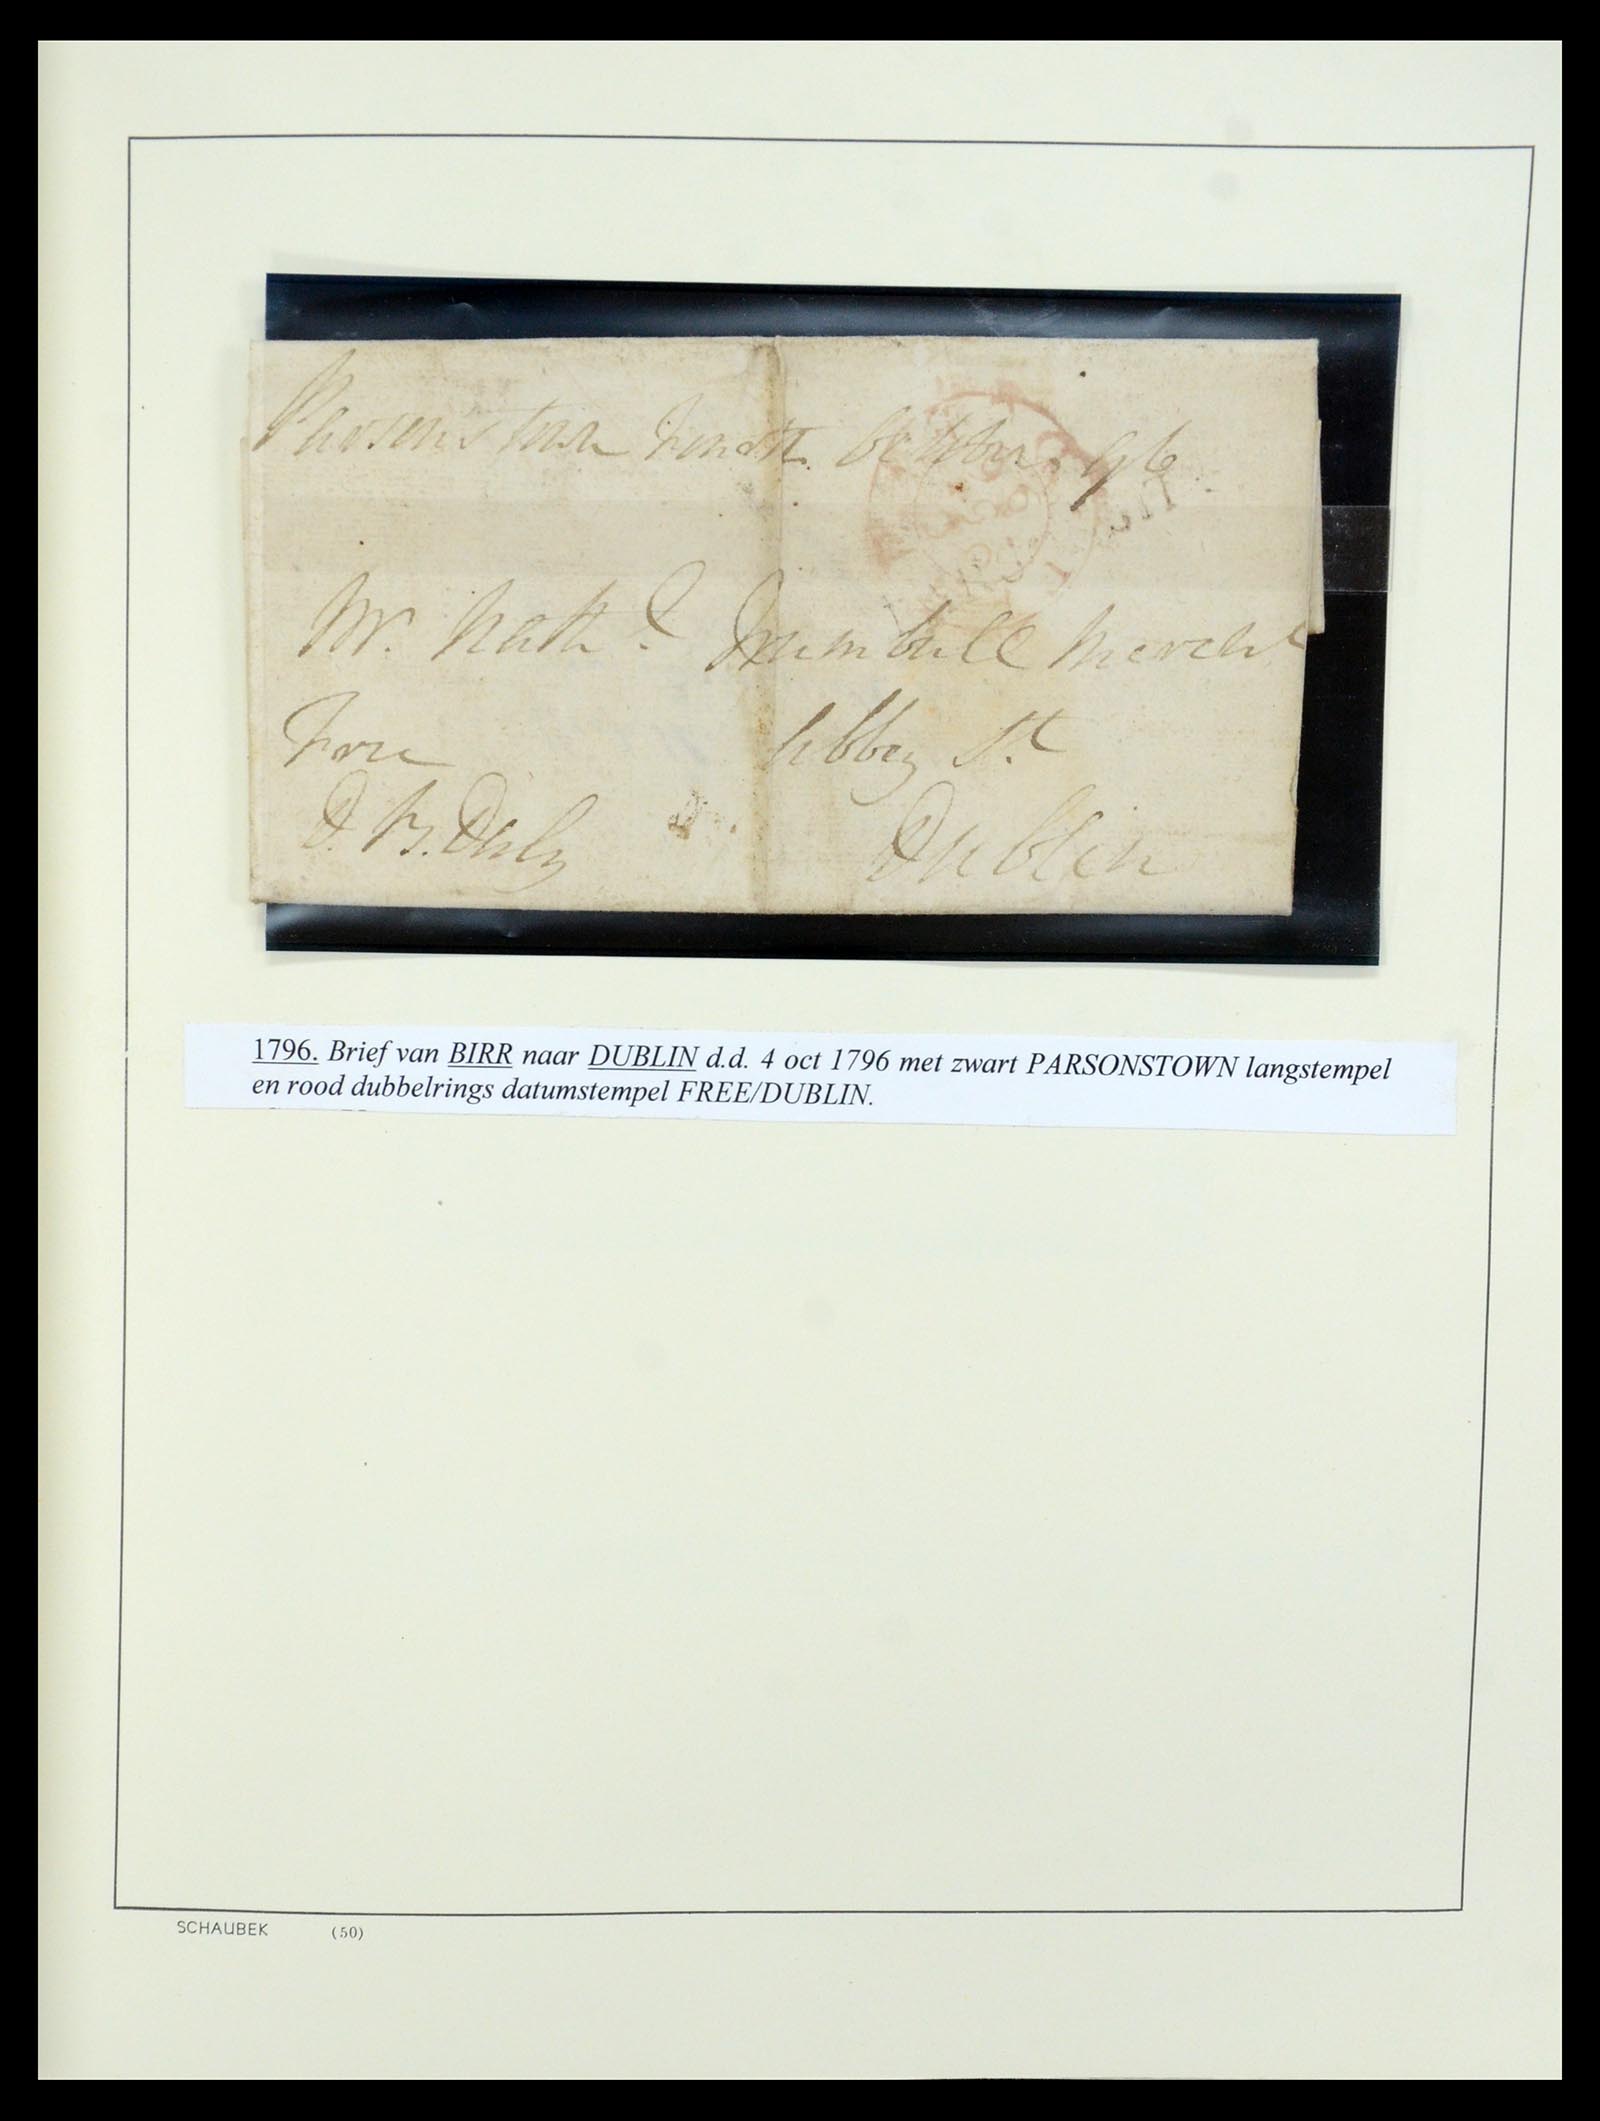 Parsonstown Fourth October 96
Mr. Nathl. Trumbull Mercht
Free Abbey St.
D. B. Daly Dublin
1796. Brief van BIRR naar DUBLIN d.d. 4 oct 1796 met zwart PARSONSTOWN langstempel
en rood dubbelrings datumstempel FREE/DUBLIN.
SCHAUBEK (50)